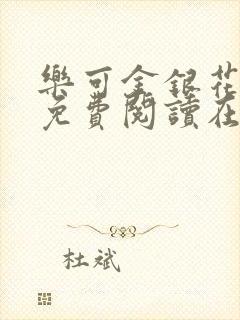 樂可金銀花
免費閱讀在
杜斌